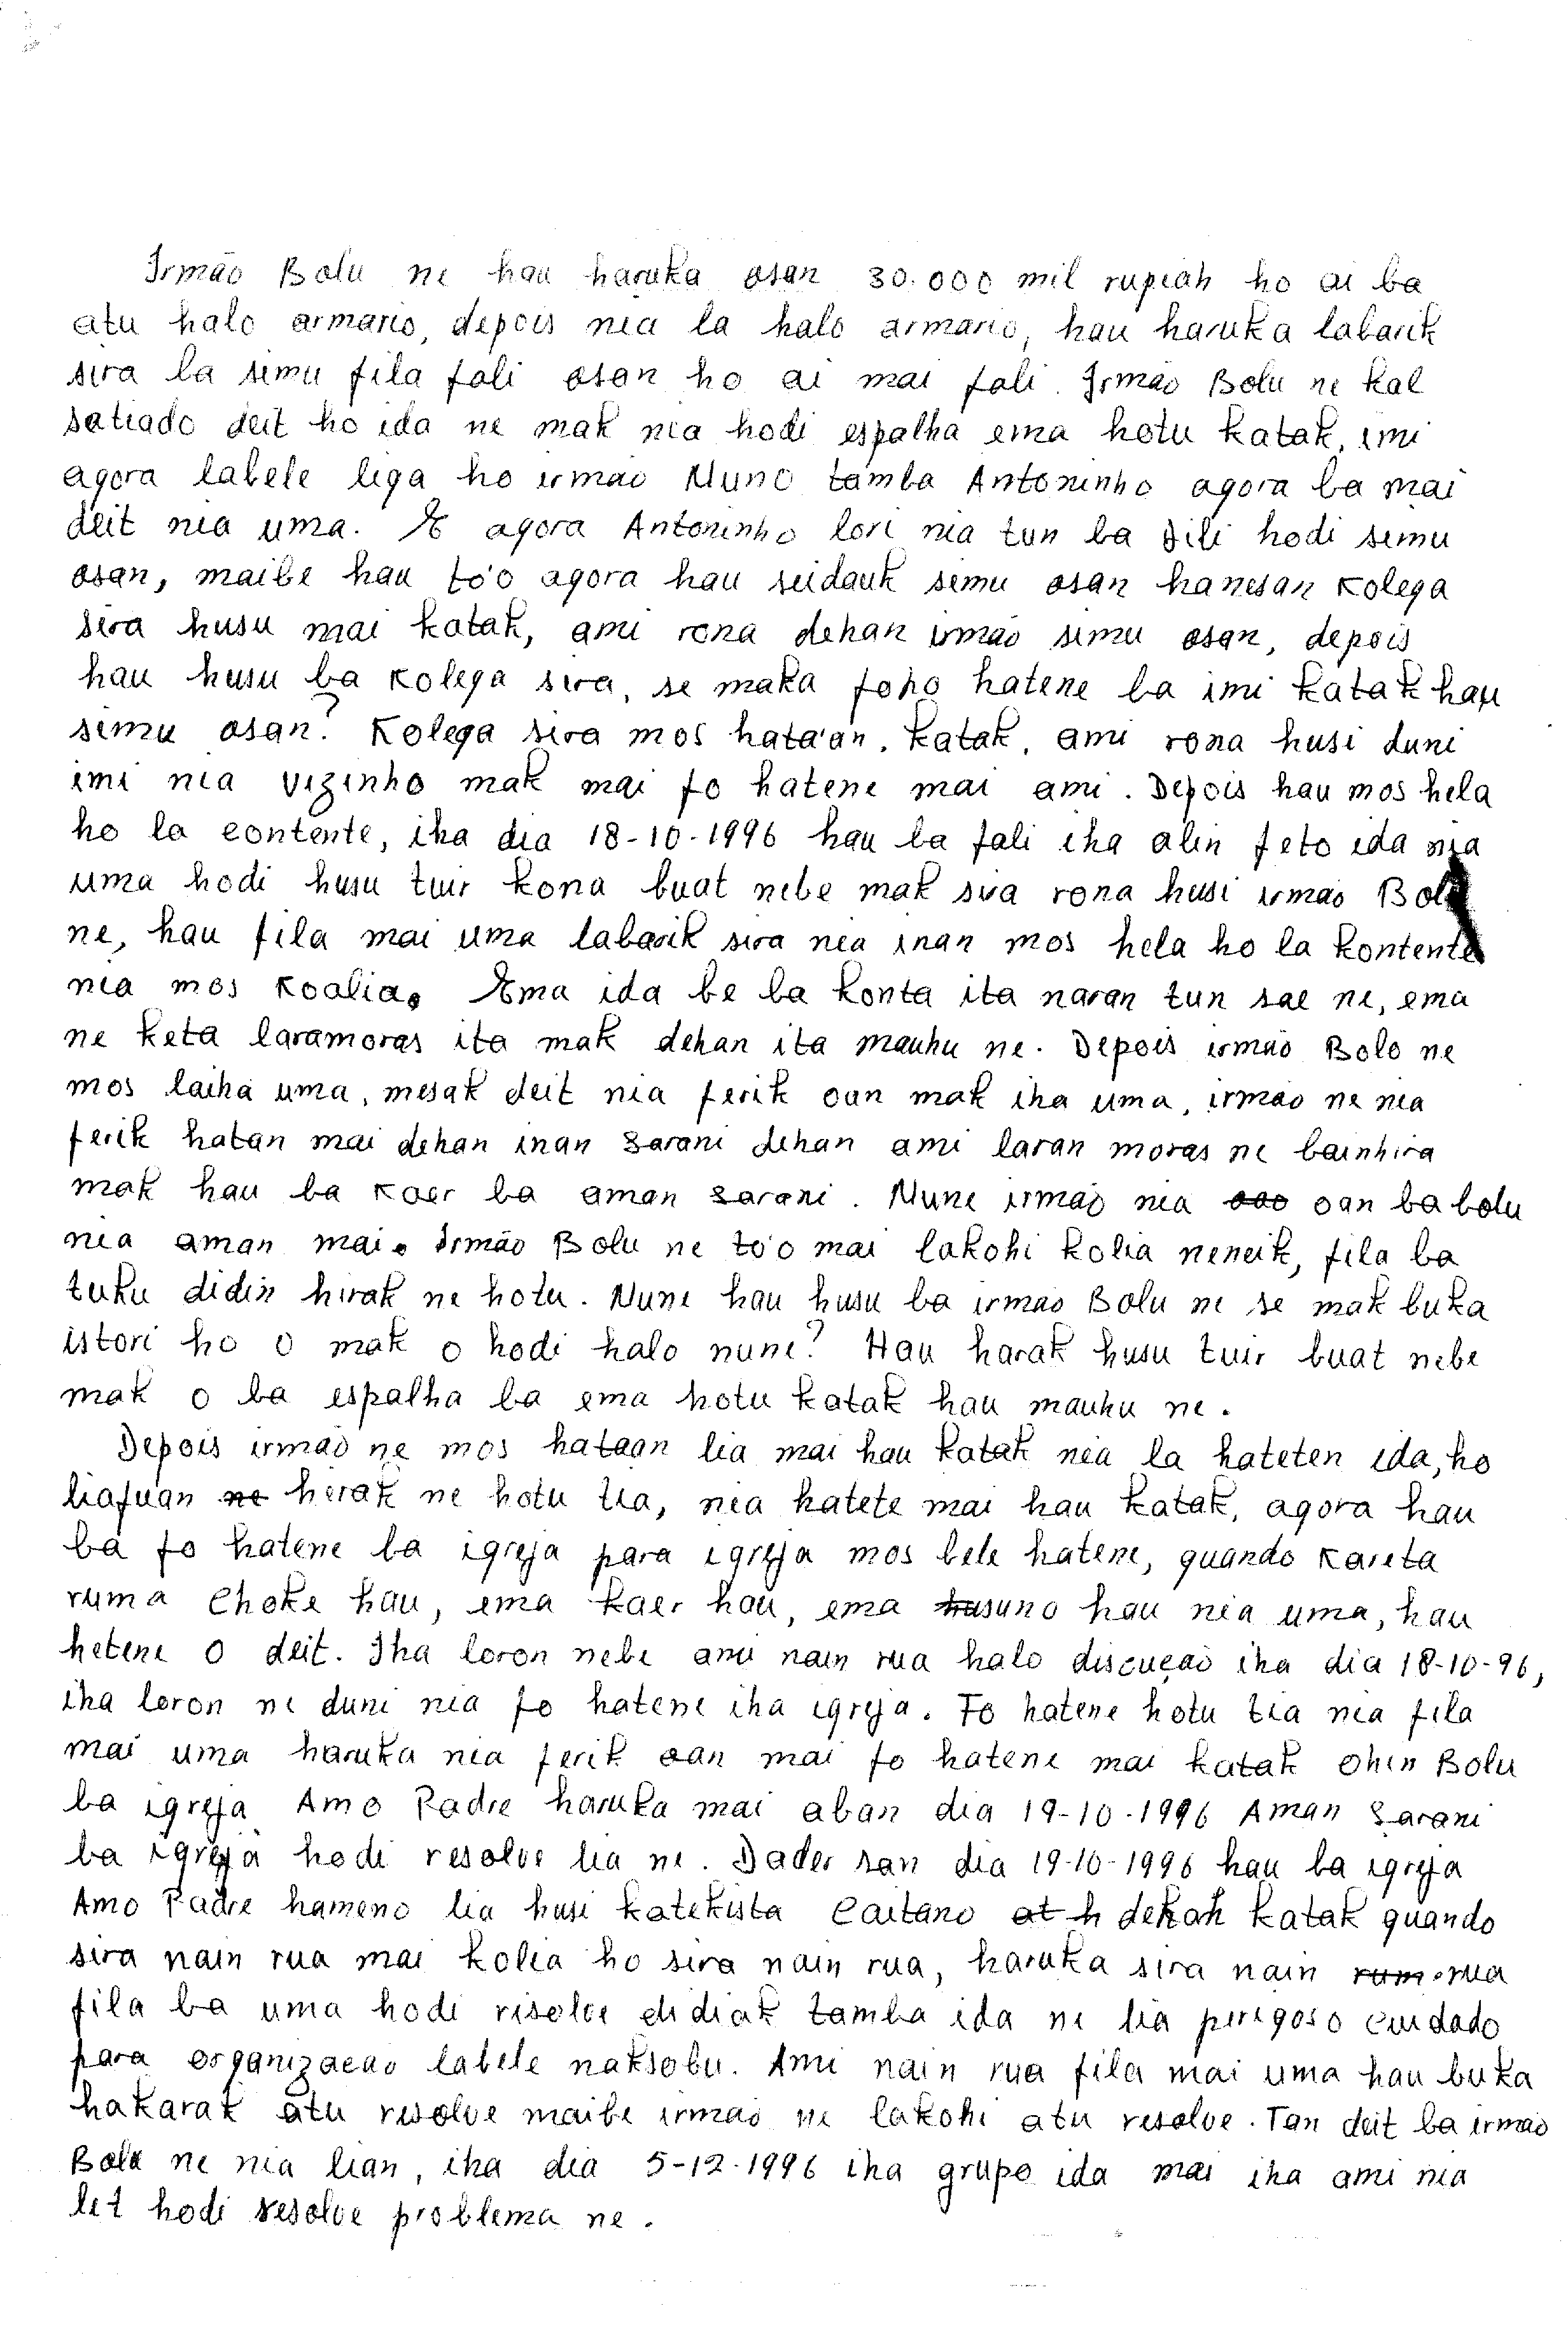 Irmão Bolu ne hau haruka osan 30.000 mil rupiah ho ai ba
atu halo armario, depois nia la halo armario, hau haruka labarik
sira la simu fila fali osan ho ai mai fali. Irmão Bolu ne kal
satiado deit ho ida ne mak nia hodi espalha ema hotu katak, imi
agora labele liga ho irmao Nuno tamba Antoninho agora ba mai
deit nia uma. E agora Antoninho lori nia tun ba Dili hodi simu
osan, maibe hau to'o agora hau seidauk simu osan hanesan kolega
sira husu mai katak, ami rona dehan irmão simu osan, depois
hau husu ba kolega sira, se maka foho hatene ba imi katak hau
simu osan? Kolega sira mos hata'an. katak, ami rona husi duni
imi nia vizinho mak mai fo hatene mai ami. Depois hau mos hela
ho la contente, iha dia 18-10-1996 hau ba fali iha alin feto ida nia
uma hodi husu tuir kona buat nebe mak sira rona husi irmão Bolu
ne, hau fila mai uma labarik sira nia inan mos hela ho la kontente
nia mos koalia. Ema ida be ba konta ita naran tun sae ne, ema
ne keta laramoras ita mak dehan ita mauhu ne. Depois irmão Bolo ne
mos laiha uma, mesak deit nia ferik oan mak iha uma, irmão ne nia
ferik hatan mai dehan inan Sarani dehan ami laran moras ne bainhira
mak hau ba kaer ba aman sarani. Nune irmão nia oan ba bolu
nia aman mai. Irmão Bolu ne to'o mai lakohi kolia neneik, fila ba
tuku didin hirak ne hotu. Nune hau husu ba irmao Bolu ne se mak buka
istori ho o mak o hodi halo nune? Hau harak husu tuir buat nebe
mak o ba espalha ba ema hotu katak hau mauhu ne.
Depois irmão ne mos hataan lia mai hau katak nia la hateten ida, ho
liafuan ne hirak ne hotu tia, nia hatete mai hau katak, agora hau
ba fo hatene ba igreja para igreja mos bele hatene, quando kareta
ruma choke hau, ema kaer hau, ema suno hau nia uma, hau
hetene o deit. Iha loron nebe ami nain rua halo discuçao iha dia 18-10-96,
iha loron ne duni nia fo hatene iha igreja. Fo hatene hotu tia nia fila
mai uma haruka nia ferik oan mai fo hatene mai katak ohin Bolu
ba igreja Amo Padre haruka mai aban dia 19-10-1996 Aman Sarani
ba igreja hodi resolve lia ne. Dader san dia 19-10-1996 hau ba igreja
Amo Padre hameno lia husi katekista Caitano at h dehan katak quando
sira nain rua mai kolia ho sira nain rua, haruka sira nain rua
fila ba uma hodi risolve didiak tamba ida ne lia perigoso cuidado
para organizacao labele naksobu. Ami nain rua fila mai uma hau buka
hakarak atu resolve maibe irmao ne lakohi atu resolve. Tan deit ba irmão
Bolu ne nia lian, iha dia 5-12-1996 iha grupo ida mai iha ami nia
let hodi resolve problema ne.